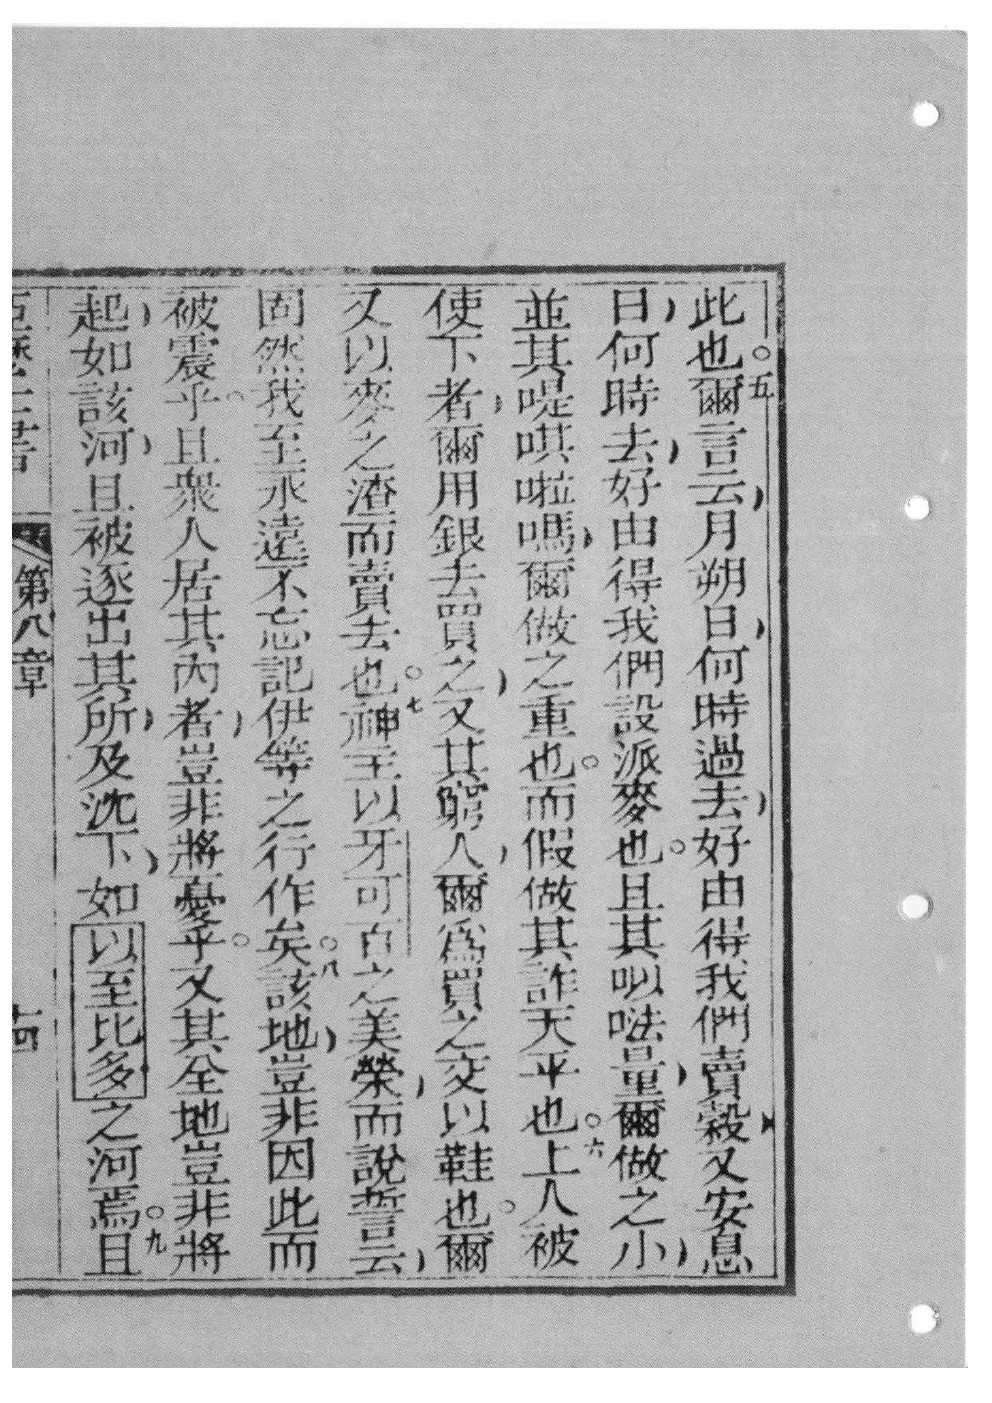 此也。五爾言云、月朔日、何時過去、好由得我們賣穀、又安息
日、何時去、好由得我們設派麥也。且其㕥𠵽量、爾做之小、
並其哫唭啦嗎、爾做之重也。而假做其詐天平也。六上人被
使下者、爾用銀去買之、又其窮人、爾爲買之交以鞋也。爾
又以麥之渣而賣去也。七神主以牙可百之美榮、而說誓云、
固然我至永遠不忘記伊等之行作矣。八該地、豈非因此而
被震乎。且衆人居其內者、豈非將憂乎。又其全地豈非將
起、如該河、且被逐出其所、及沈下、如以至比多之河焉。九且
第八章